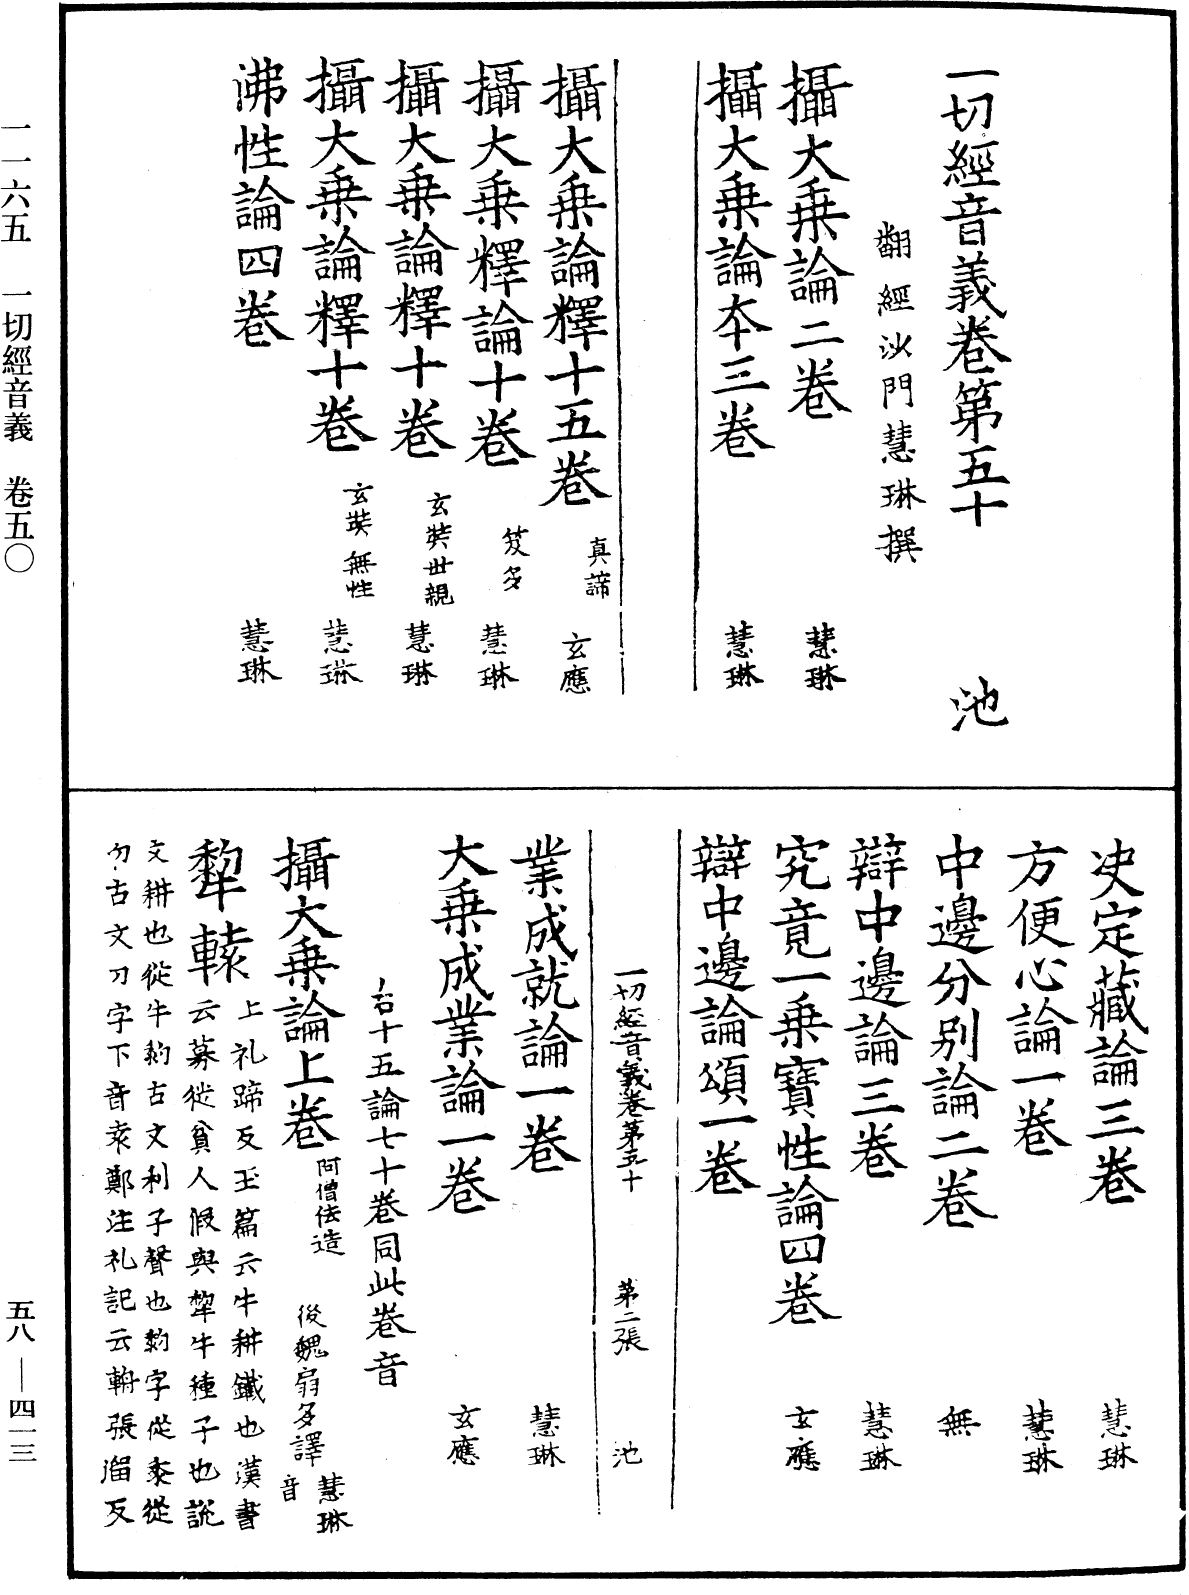 一一六五　一切經音義　卷五〇
五八—四一三
一切經音義卷第五十　池
翻經沙門慧琳撰
攝大乗論二卷　慧琳
攝大乗論夲三卷　慧琳
攝大乗論釋十五卷　真諦　玄應
攝大乗釋論十卷　笈多　慧琳
攝大乗論釋十卷　玄奘世親　慧琳
攝大乗論釋十卷　玄奘無性　慧琳
沸性論四卷　慧琳
决定藏論三卷　慧琳
方便心論一卷　慧琳
中邊分別論二卷　無
辯中邊論三卷　慧琳
究竟一乗寶性論四卷　玄應
辯中邊論頌一卷
一切經音義卷第五十　第二張　池
業成就論一卷　慧琳
大乗成業論一卷　玄應
右十五論七十卷同此卷音
攝大乗論上卷　阿僧佉造　後魏扇多譯　慧琳音
犂轅　上礼蹄反玉篇云牛耕鐵也漢書
云募徙貧人假與犂牛種子也說
文耕也從牛𥝢古文利子聲也𥝢字從黍從
勿古文刀字下音袁鄭注礼記云輈張留反